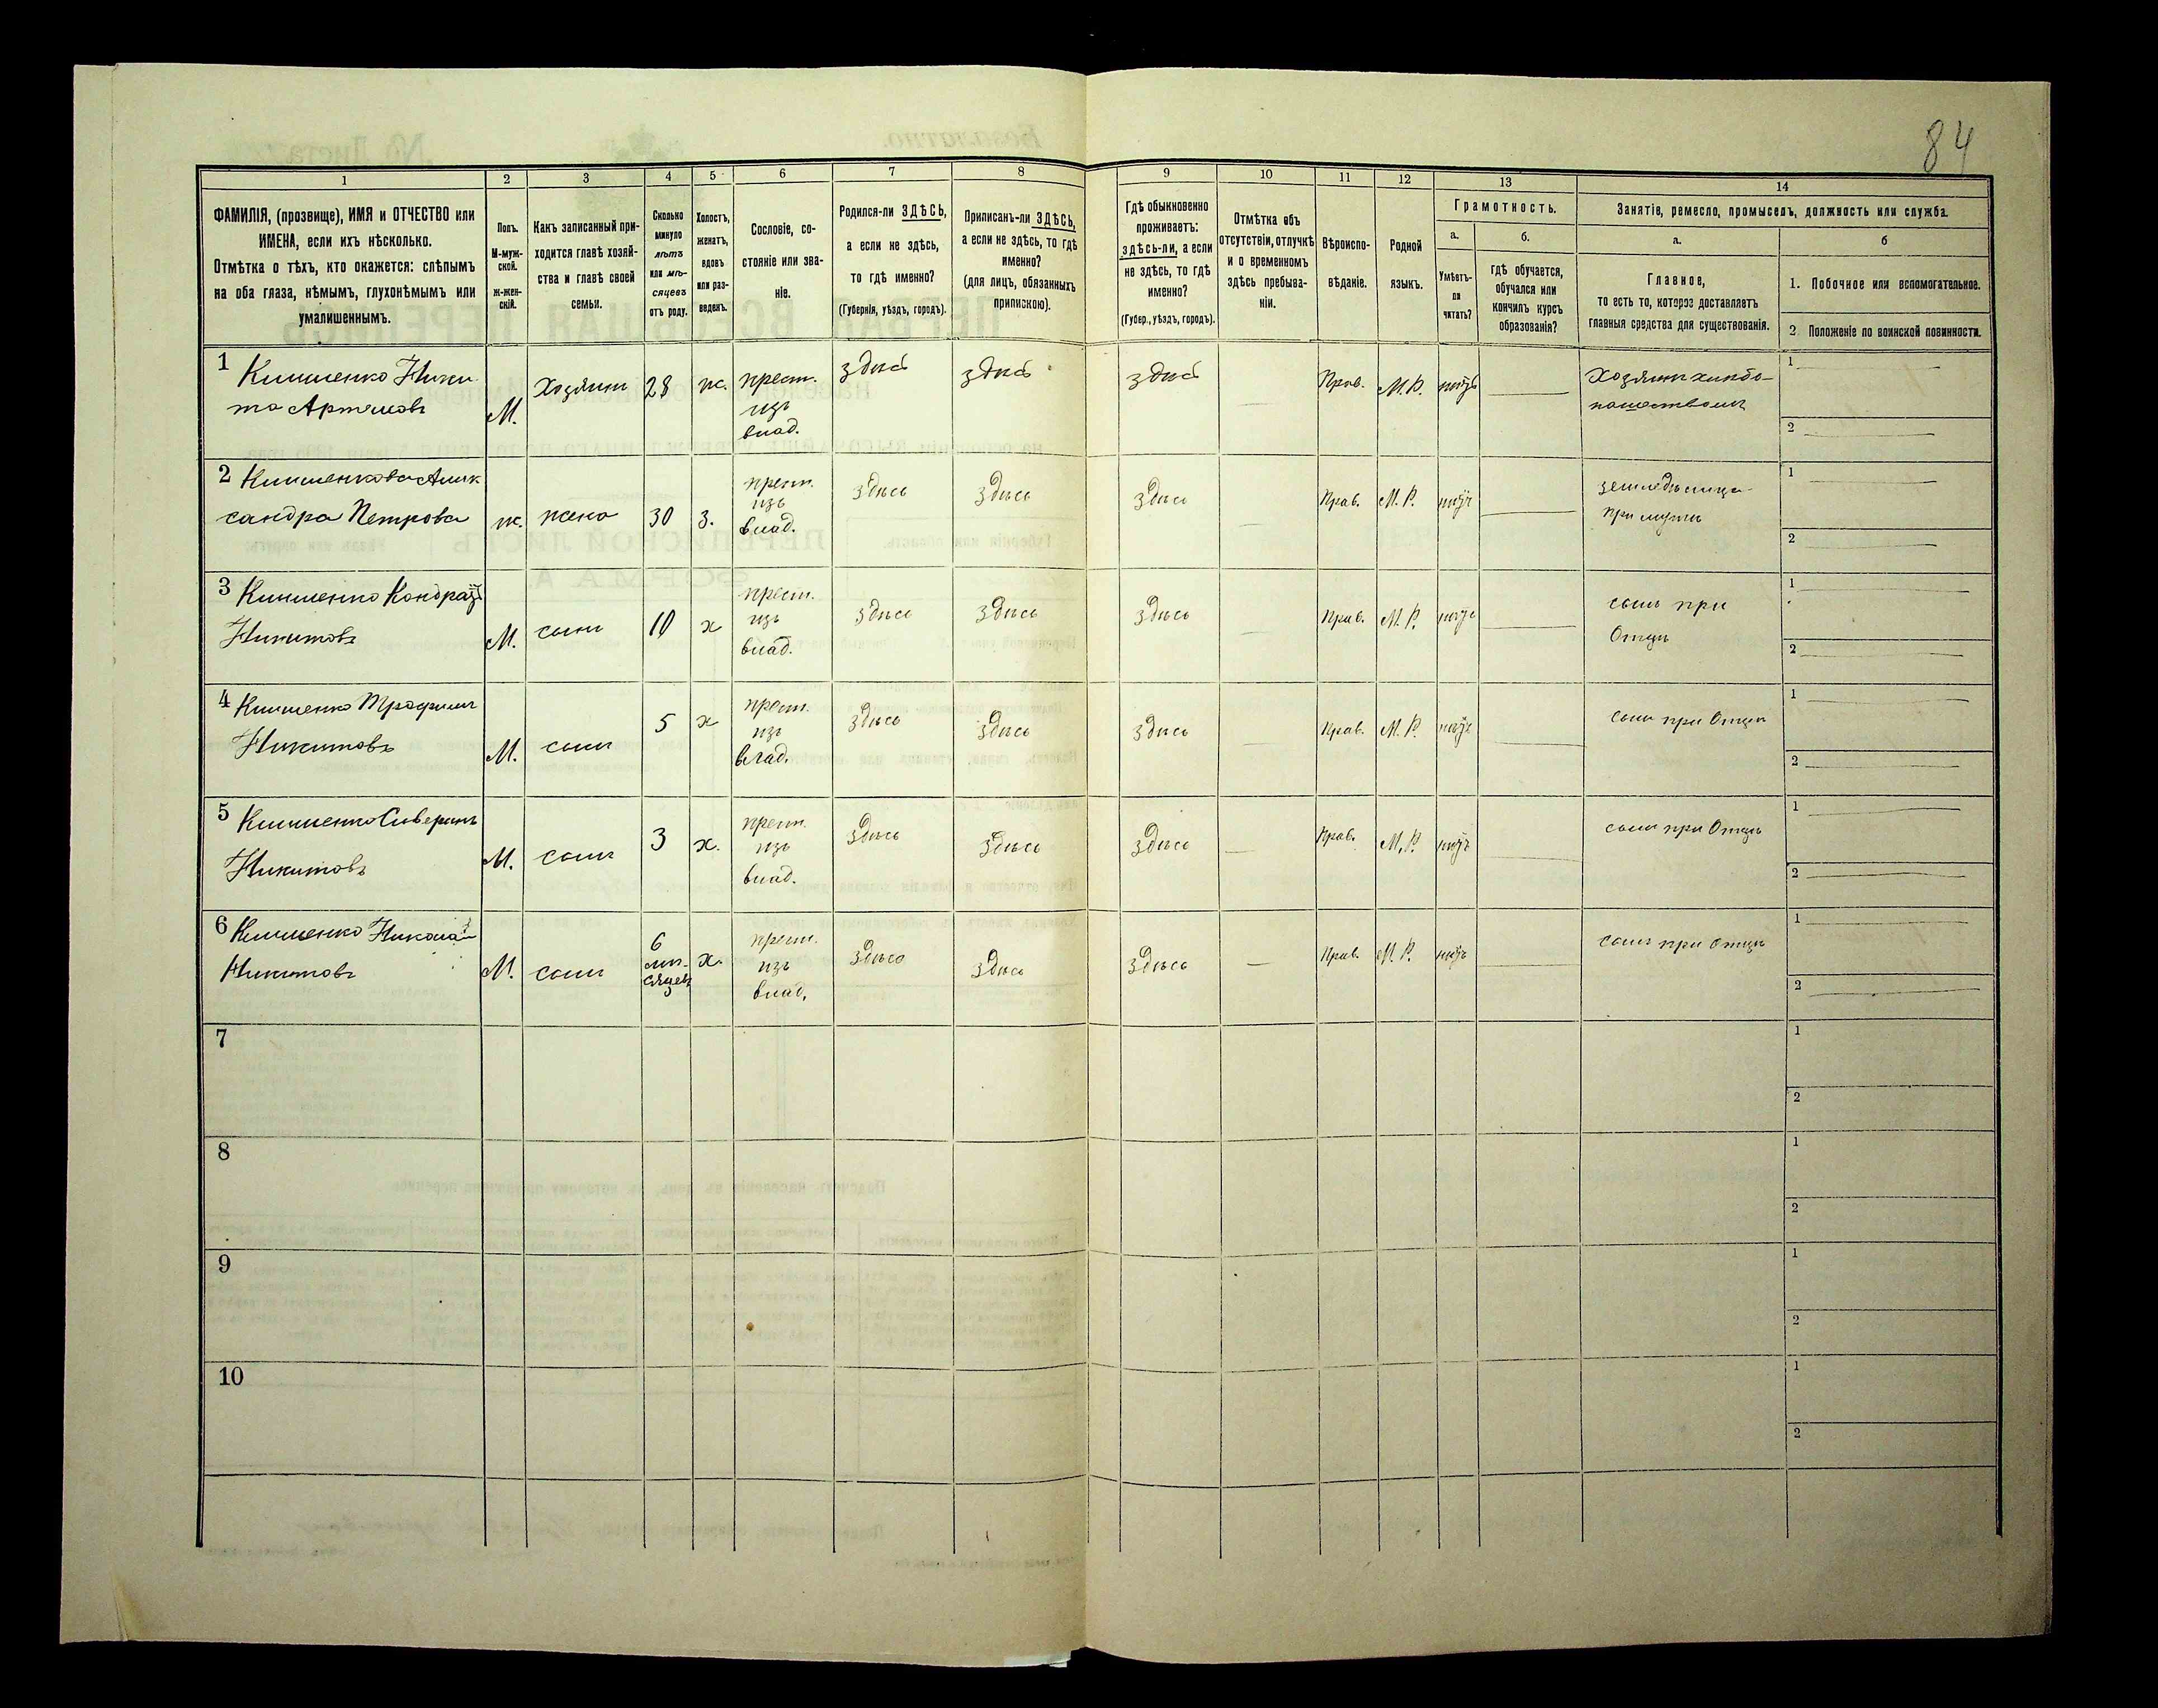 84
1 2 3 4 5 6 7 8 9 10 11 12 13 14
ФАМИЛІЯ, (прозвище), ИМЯ и ОТЧЕСТВО или
ИМЕНА, если ихъ нѣсколько.
Отмѣтка о тѣхъ, кто окажется: слѣпымъ
на оба глаза, нѣмымъ, глухонѣмымъ или
умалишеннымъ.
Полъ.
М-муж-
ской.
ж-жен-
скій.
Какъ записанный при-
ходится главѣ хозяй-
ства и главѣ своей
семьи.
Сколько
минуло
лѣтъ
или мѣ-
сяцевъ
отъ роду.
Холостъ,
женатъ,
вдовъ
или раз-
веденъ.
Сословіе, со-
стояніе или зва-
ніе.
Родился-ли ЗДѢСЬ,
а если не здѣсь,
то гдѣ именно?
(Губернія, уѣздъ, городъ).
Приписанъ-ли ЗДѢСЬ,
а если не здѣсь, то гдѣ
именно?
(для лицъ, обязанныхъ
припискою).
Гдѣ обыкновенно
проживаетъ:
здѣсь-ли, а если
не здѣсь, то гдѣ
именно?
(Губер., уѣздъ, городъ).
Отмѣтка объ
отсутствіи, отлучкѣ
и о временномъ
здѣсь пребыва-
ніи.
Вѣроиспо-
вѣданіе.
Родной
языкъ.
Грамотность.
а.
Умѣетъ-
ли
читать?
б.
гдѣ обучается,
обучался или
кончилъ курсъ
образованія?
Занятіе, ремесло, промыселъ, должность или служба.
а.
Главное,
то есть то, которое доставляетъ
главныя средства для существованія.
б
1. Побочное или вспомогательное.
2 Положеніе по воинской повинности.
1 Климменко Ники-
та Артемовъ
М. Хозяинъ 28 ж. крест.
изъ
влад.
здѣсь здѣсь здѣсь — Прав. М.Р. нѣтъ — Хозяинъ хлѣбо-
пашествомъ
1 —
2 —
2 Климменкова Алек
сандра Петрова
ж. жена 30 з. крест.
изъ
влад.
здѣсь здѣсь здѣсь — Прав. М.Р. нѣтъ —
при мужѣ
1 —
2 —
3 Климменко Кондратій
Никитовъ
М. сынъ 10 х крест.
изъ
влад.
здѣсь здѣсь здѣсь — Прав. М.Р. нѣтъ — сынъ при
Отцѣ
1 —
2 —
4 Климменко Трофимъ
Никитовъ
М. сынъ 5 х крест.
изъ
влад.
здѣсь здѣсь здѣсь — Прав. М.Р. нѣтъ — сынъ при Отцѣ
1 —
2 —
5 Климменко Сиверинъ
Никитовъ
М. сынъ 3 х. крест.
изъ
влад.
здѣсь здѣсь здѣсь — Прав. М.Р. нѣтъ — сынъ при Отцѣ
1 —
2 —
6 Климменко Николай
Никитовъ
М. сынъ 6
мѣ-
сяцевъ
х. крест.
изъ
влад.
здѣсь здѣсь здѣсь — Прав. М.Р. нѣтъ — сынъ при Отцѣ
1 —
2 —
7
1
2
8
1
2
9
1
2
10
1
2